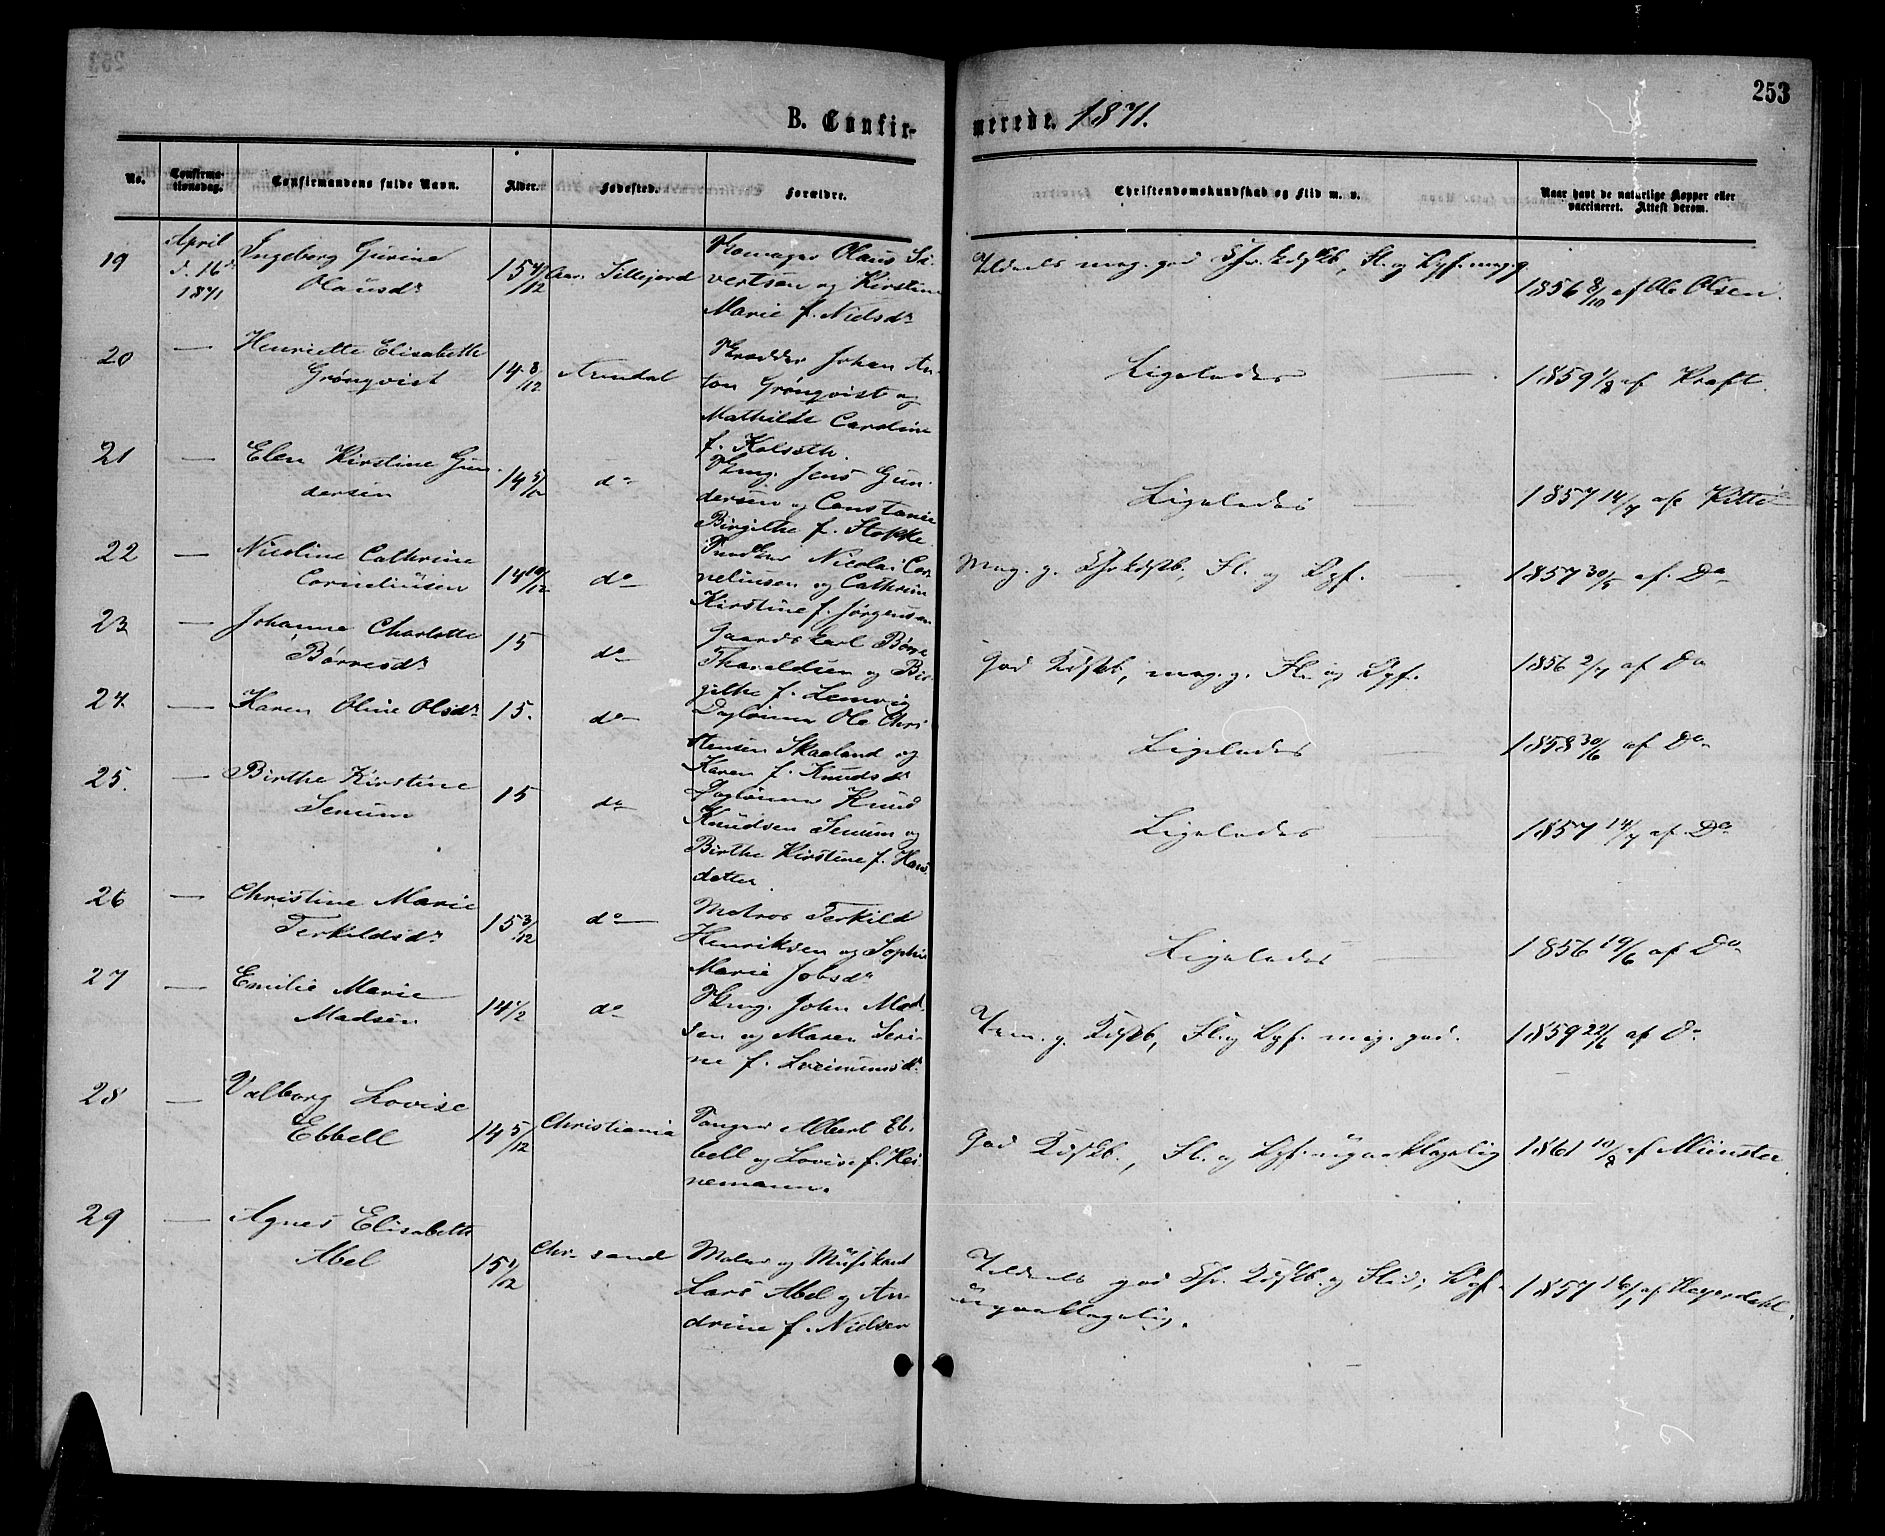 253
B. Confirmerede. 1871.
No. Confirmationsdag. Confirmandens fulde Navn. Alder. Fødested. Forældre. Christendomskundskab og Flid m. v. Naar havt de naturlige Kopper eller vaccineret. Attest derom.
19 April d. 16de 1871 Ingeborg Gurine Olausdr 15 Lillejord Olaus Sivertsen og Kirstine Marie f. Nielsdr mag. god Fl. og Opf. mag. g. 1856 8/10 af Ole Olsen.
20 — Henriette Elisabeth Grönqvist 14 8/12 Arendal Johan Anton Grönqvist og Mathilde Caroline f. Kolseth. Ligeledes — 1859 1/8 af Kraft.
21 — Elen Kirstine Gundersen 14 5/12 do Jens Gundersen og Constance Birgithe f. Stokke. Ligeledes — 1857 14/7 af Kittel
22 — Nicoline Cathrine Corneliüsen 14 10/12 do Nicolai Corneliusen og Cathrine Kirstine f. Jørgensen Mag. g. Chr.kdskb., Fl. og Opf. — 1857 30/5 af Do
23 — Johanne Charlotte Børresdr 15 do Gaardskarl Børre Tharaldsen og Birgithe f. Lemvig God Kdskb., mag. g. Fl. og Opf. 1856 2/7 af Do
24 — Karen Oline Olsdr 15. do Daglønner Ole Christensen Skaaland og Karen f. Knudsdr Ligeledes — 1858 30/6 af Do
25. — Birthe Kirstine Senum 15 do Daglønner Knud Knudsen Senum og Birthe Kirstine f. Hansdatter. Ligeledes — 1857 14/7 af Do
26 — Christine Marie Terkildsdr 15 3/12 do Matros Terkild Henriksen og Sophie Marie Jobsdr Ligeledes — 1856 19/6 af Do
27 — Emilie Marie Madsen 14 1/2 do John Madsen og Maren Serine f. g. Kdskb., Fl. og Opf. mag. god. 1859 22/6 af Do
28 — Valborg Lovise Ebbell 14 5/12 Christiania Albert Ebbell og Lovise f. Heinemann. God Kdskb., Fl. og Opf. üpaaklagelig 1861 10/8 af Münster.
29 — Agnes Elisabeth Abel 15 1/12 Chr.sand Maler og Müsikant Lars Abel og Andrine f. Nielsen god Chr. Kdskb. og Flid, Opf. üpaaklagelig. 1857 16/1 af Heyerdahl.